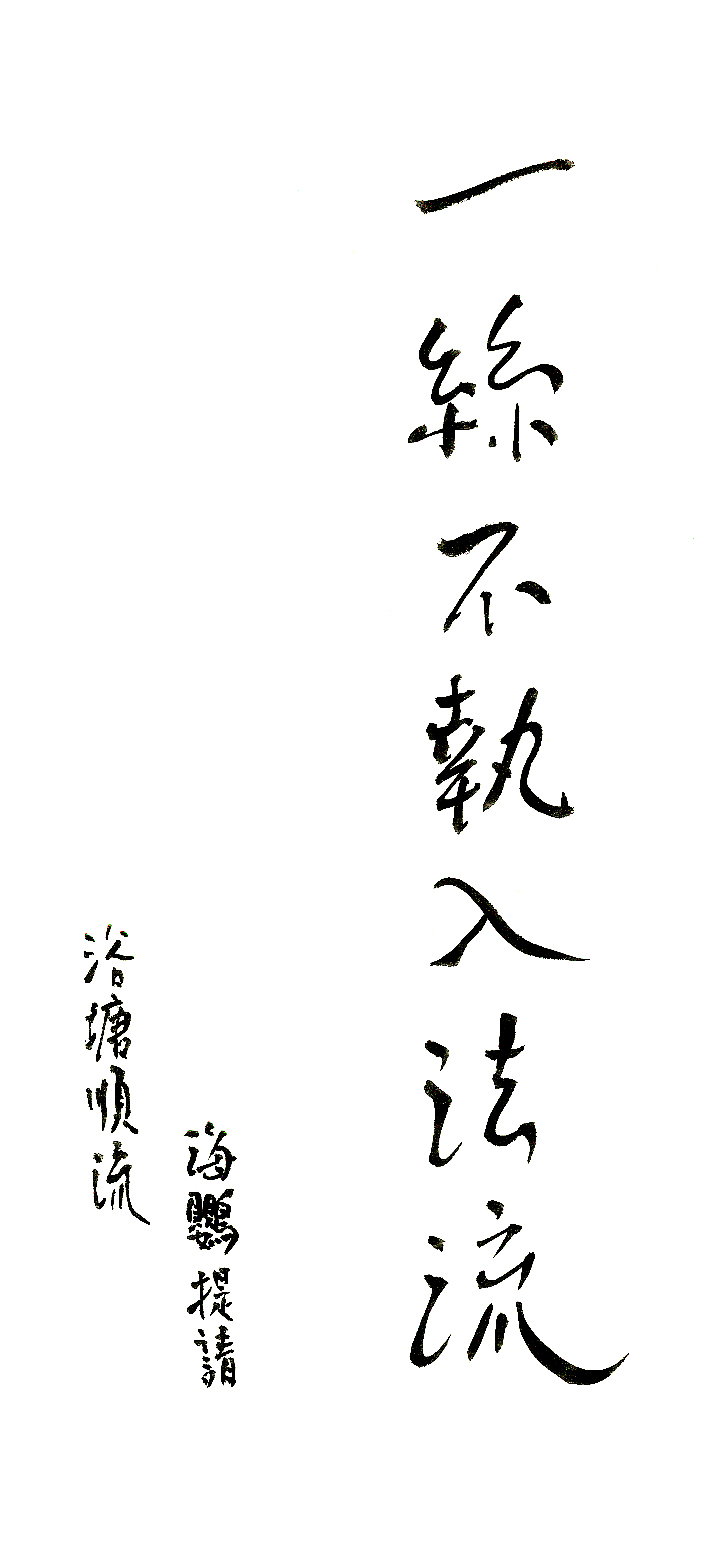 一絲不執入法流
海鸚提請
浴塘順流